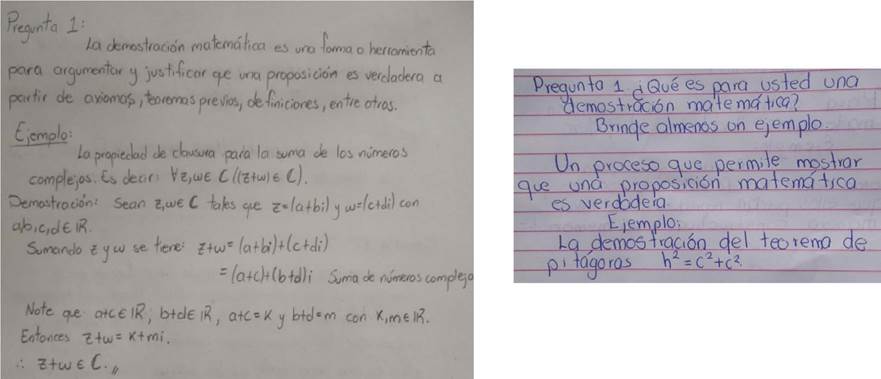 Pregunta 1:
La demostración matemática es una forma o herramienta
para argumentar y justificar que una proposición es verdadera a
partir de axiomas, teoremas previos, definiciones, entre otras.
Ejemplo:
La propiedad de clausura para la suma de los números
complejos. Es decir: ∀z,w∈ C ((z+w) ∈ C).
Demostración: Sean z,w∈ C tales que z=(a+bi) y w=(c+di) con
a,b,c,d∈ IR.
Sumando z y w se tiene: z+w = (a+bi)+(c+di)
= (a+c)+(b+d)i Suma de números complejo
Note que a+c∈ IR, b+d∈ IR, a+c=K y b+d=m con K,m∈ IR.
Entonces z+w = K+mi.
∴ z+w ∈ C.//
Pregunta 1 ¿Qué es para usted una
demostración matemática?
Brinde almenos un ejemplo.
Un proceso que permite mostrar
que una proposición matemática
es verdadera.
Ejemplo:
La demostración del teorema de
pitágoras h²=c²+c².